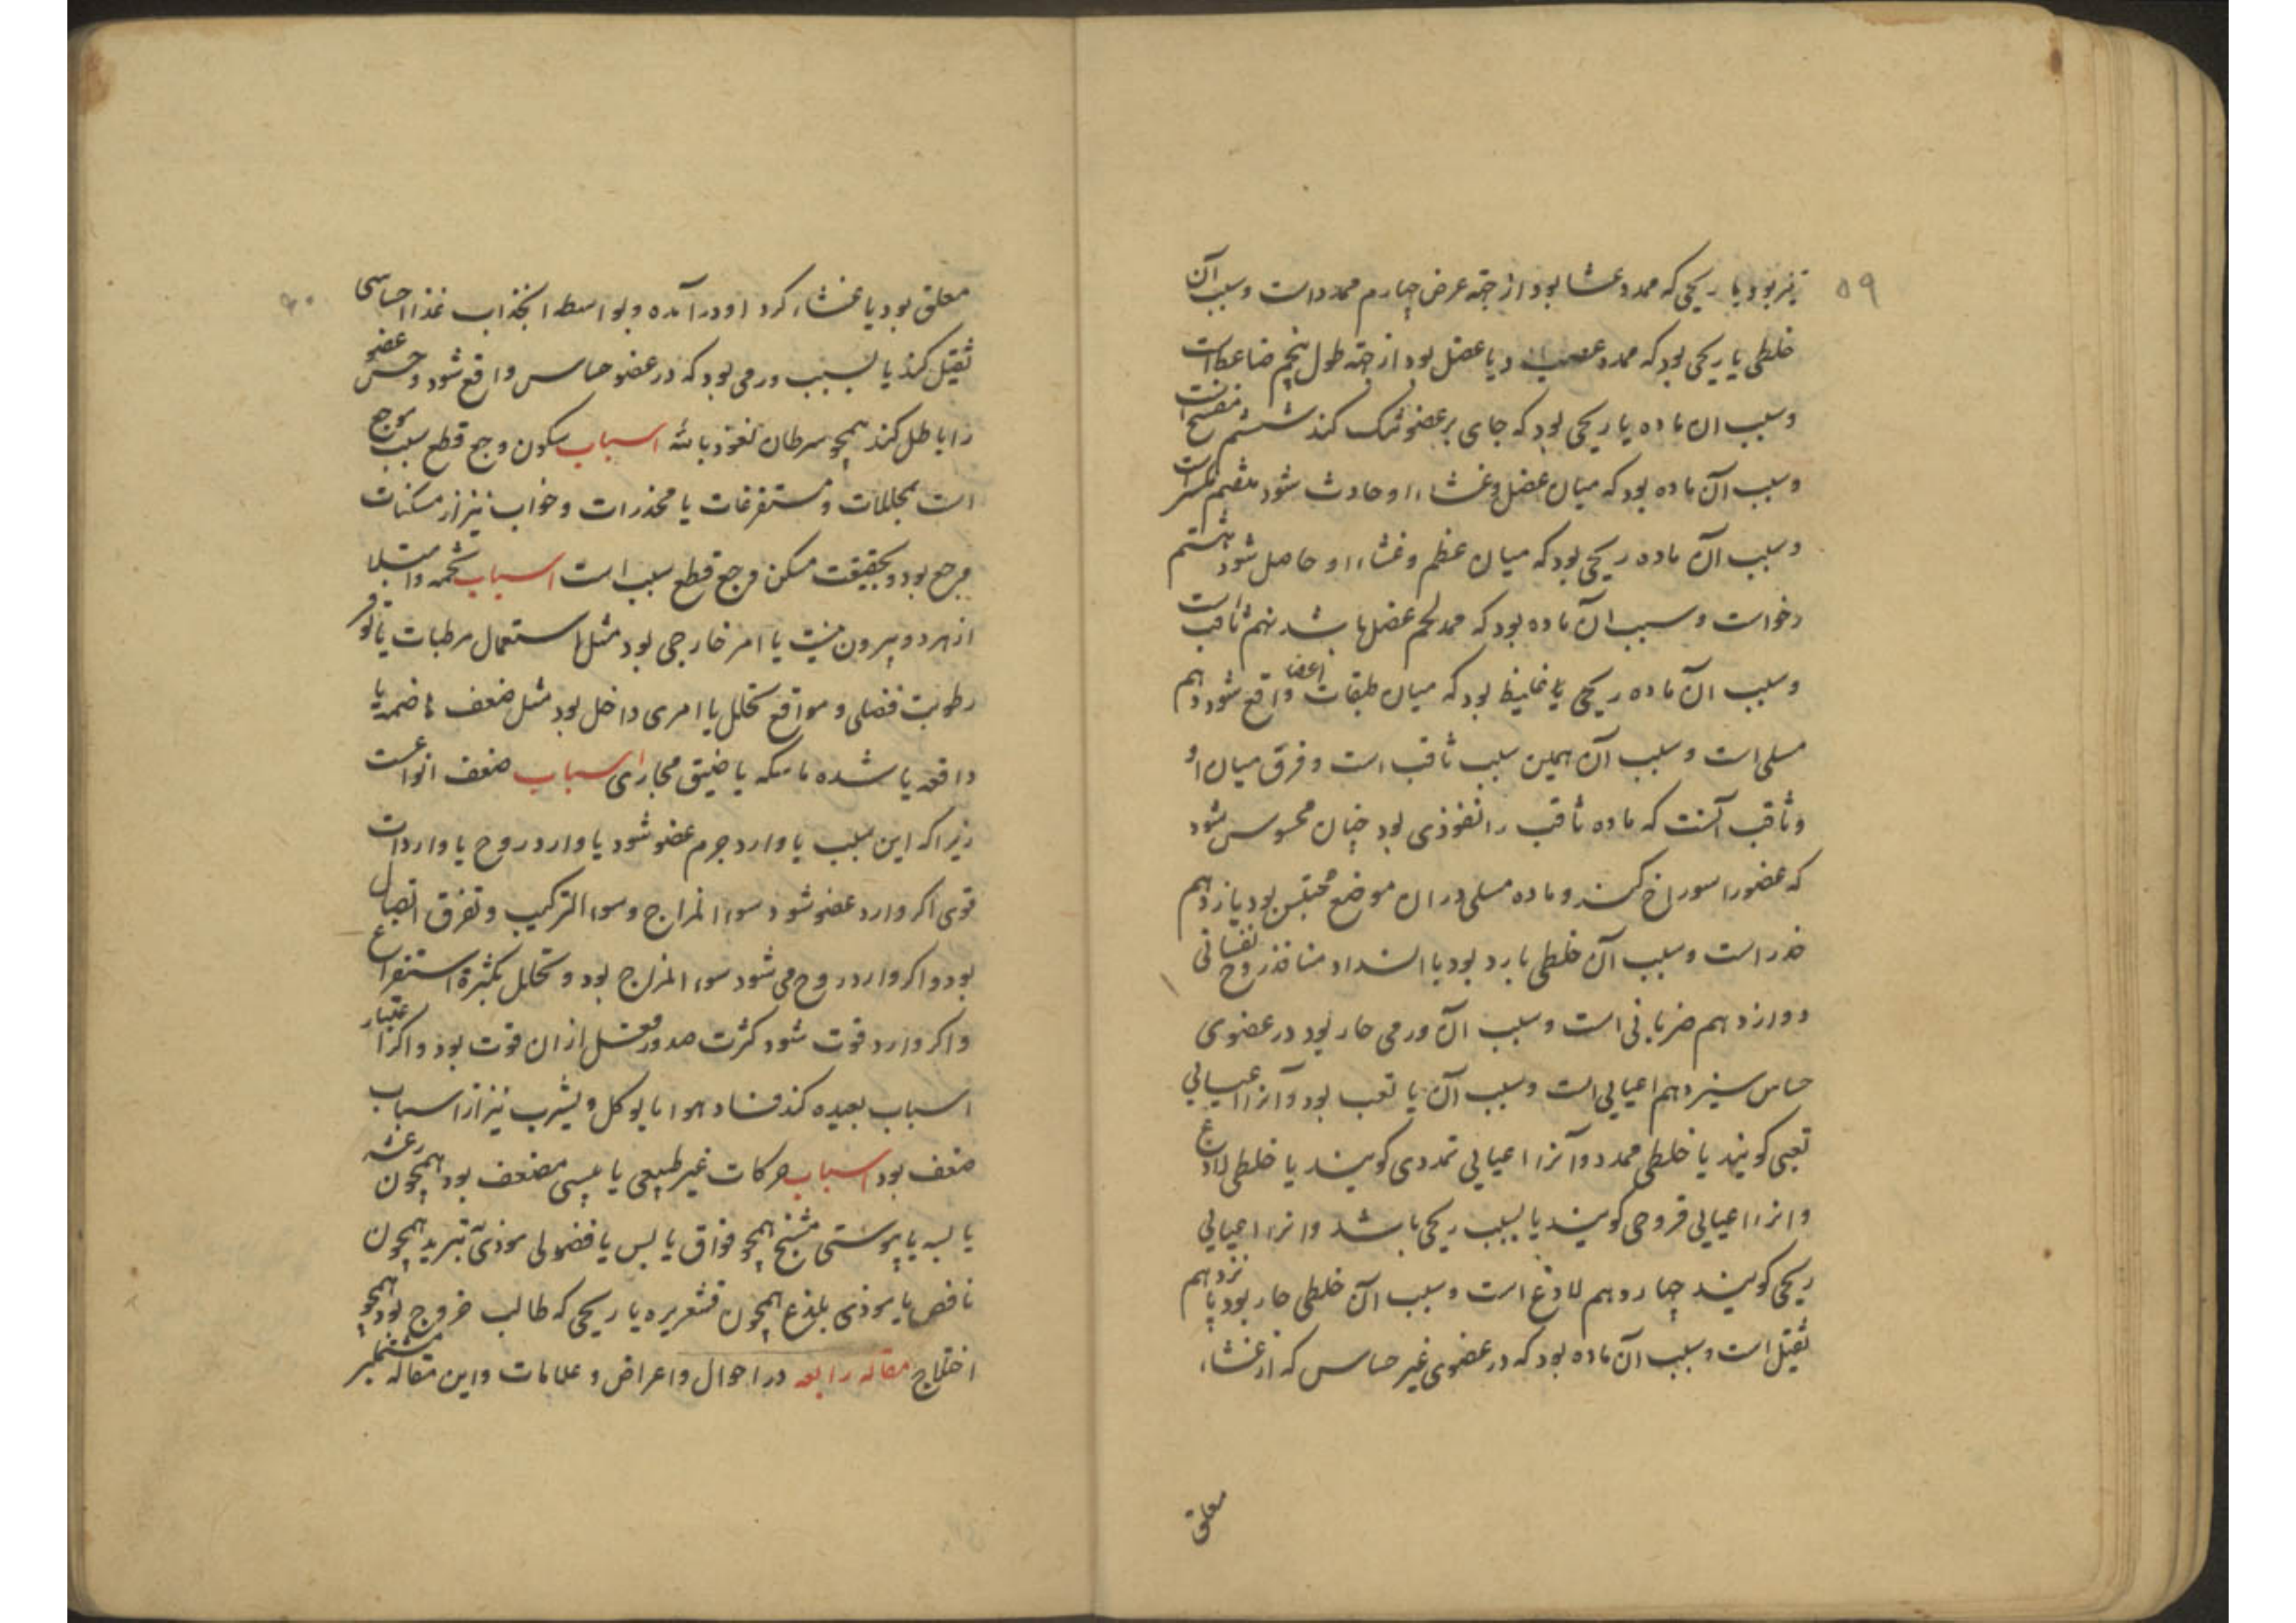 ۵۹
تیز بود یا ریحی که ممدد غشا بود از جهة عرض چهارم ممدد است و سبب آن
خلطی یا ریحی بود که ممدد عصب و یا عضل بود از جهة طول پنجم ضاغط است
و سبب ان ماده یا ریحی بود که جای بر عضو تنک کند ششم مفسخ است
و سبب آن ماده بود که میان عضل و غشاء او حادث شود هفتم مکسر است
و سبب آن ماده ریحی بود که میان عظم و غشاء او حاصل شود هشتم
رخو است و سبب ان ماده بود که ممدد لحم عضل باشد نهم ثاقب است
و سبب ان ماده ریحی یا غلیظ بود که میان طبقات اعضا واقع شود دهم
مسلی است و سبب آن همین سبب ثاقب است و فرق میان او
و ثاقب آنست که ماده ثاقب را نفوذی بود چنان محسوس شود
که عضو را سوراخ کند و ماده مسلی در ان موضع محتبس بود یازدهم
خدر است و سبب آن خلطی بارد بود یا انسداد منافذ روح نفسانی
دوازدهم ضربانی است و سبب ان ورمی حار بود در عضوی
حساس سیزدهم اعیایی است و سبب آن یا تعب بود و آنرا اعیایی
تعبی کویند یا خلطی ممدد و آنرا اعیایی تمددی کویند یا خلطی لاذع
و انرا اعیایی قروحی کویند یا بسبب ریحی باشد و انرا اعیایی
ریحی کویند چهاردهم لاذع است و سبب ان خلطی حار بود پانزدهم
ثقیل است و سبب آن ماده بود که در عضوی غیر حساس که از غشاء
معلق
۶۰
معلق بود یا غشاء کرد او در آمده و بواسطه انجذاب غذا احساسی
ثقیل کند یا بسبب ورمی بود که در عضو حساس واقع شود و حس عضو
را باطل کند همچو سرطان نعوذ بالله اسباب سکون وجع قطع سبب موجع
است بمحللات و مستفرغات یا مخدرات و خواب نیز از مسکنات
وجع بود و بحقیقت مسکن وجع قطع سبب است اسباب تخمه و امتلا
از هر دو بیرون نیست یا امر خارجی بود مثل استعمال مرطبات یا
رطوبت فضلی و مواقع تحلل یا امری داخل بود مثل ضعف هاضمه یا
دافعه یا شده ماسکه یا ضیق مجاری اسباب ضعف انواعست
زیرا که این سبب یا وارد جرم عضو شود یا وارد روح یا وارد است
قوی اکر وارد عضو شود سوء المزاج و سوء الترکیب و تفرق اتصال
بود و اکر وارد روح می شود سوء المزاج بود و تحلل بکثرة استفراغ
و اکر وارد قوت شود کثرت صدور فعل از ان قوت بود و اکر اعتبار
اسباب بعیده کند فساد هوا ما یوکل و یشرب نیز از اسباب
ضعف بود اسباب حرکات غیر طبیعی یا مضعف بود همچون رعشه
یا یبوستی مشنج همچو فواق یا بس یا فضولی موذی تبرید همچون
نافض یا موذی بلذع همچون قشعریره یا ریحی که طالب خروج بود همچو
اختلاج مقاله رابعه در احوال و اعراض و علامات و این مقاله مشتمل بر